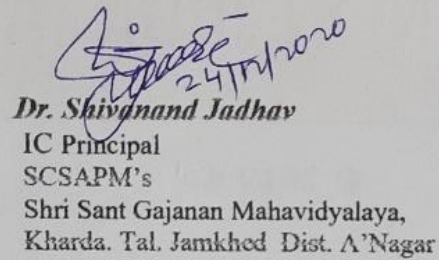 24/12/2020
Dr. Shivanand Jadhav
IC Principal
SCSAPM's
Shri Sant Gajanan Mahavidyalaya,
Kharda. Tal. Jamkhed Dist. A'Nagar